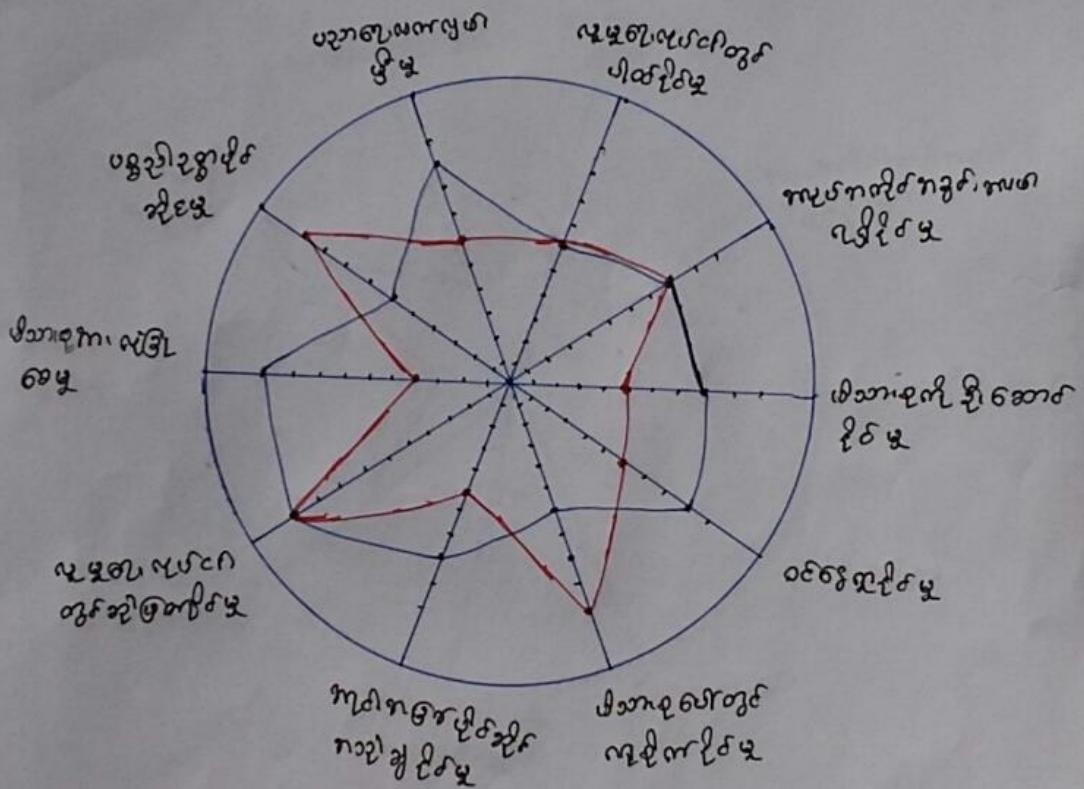 ပညာရေးအကာလှမ်း
မှီမှု
လူမှုရေးလုပ်ငန်းတွင်
ပါဝင်နိုင်မှု
အလုပ်အကိုင်အခွင့်အလမ်း
ရရှိနိုင်မှု
မိသားစုကို ဦးဆောင်
နိုင်မှု
ဝင်ငွေရှာနိုင်မှု
မိသားစုပေါ်တွင်
နိုင်မှု
နိုင်မှု
လူမှုရေးလုပ်ငန်း
တွင်ဆုံးဖြတ်နိုင်မှု
မိသားစုအား လုံခြုံ
စေမှု
ပစ္စည်းဥစ္စာပိုင်
ဆိုင်မှု